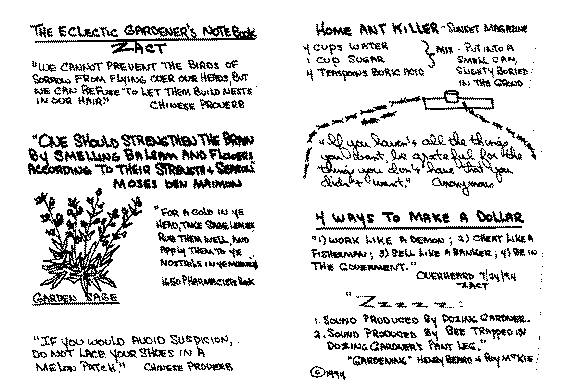 THE ECLECTIC GARDENER'S NOTEBOOK
ZACT
"WE CANNOT PREVENT THE BIRDS OF
SORROW FROM FLYING OVER OUR HEADS, BUT
WE CAN REFUSE TO LET THEM BUILD NESTS
IN OUR HAIR." CHINESE PROVERB
"ONE SHOULD STRENGTHEN THE BRAIN
BY SMELLING BALSAM AND FLOWERS
ACCORDING TO THEIR STRENGTH & SEASON
MOSES BEN MAIMON
"FOR A COLD IN YE
HEAD, TAKE SAGE LEAVES
RUB THEM WELL, AND
APPLY THEM TO YE
NOSTRILS IN YE MORNING
1650 PHARMACISTS BOOK
GARDEN SAGE
"IF YOU WOULD AVOID SUSPICION,
DO NOT LACE YOUR SHOES IN A
MELON PATCH." CHINESE PROVERB
HOME ANT KILLER - SUNSET MAGAZINE
4 CUPS WATER
1 CUP SUGAR
4 TEASPOONS BORIC ACID
MIX - PUT INTO A
SMALL CAN,
SLIGHTLY BURIED
IN THE GROUND
"If you haven't all the things
you want, be grateful for the
things you don't have that you
didn't want." Anonymous
4 WAYS TO MAKE A DOLLAR
"1) WORK LIKE A DEMON; 2) CHEAT LIKE A
FISHERMAN; 3) SELL LIKE A BANKER; 4) BE IN
THE GOVERNMENT."
OVERHEARD 7/24/94
ZACT
"Z z z z z :
1. SOUND PRODUCED BY DOZING GARDENER.
2. SOUND PRODUCED BY BEE TRAPPED IN
DOZING GARDENER'S PANT LEG."
"GARDENING" HENRY BEARD & ROY MCKIE
© 1994